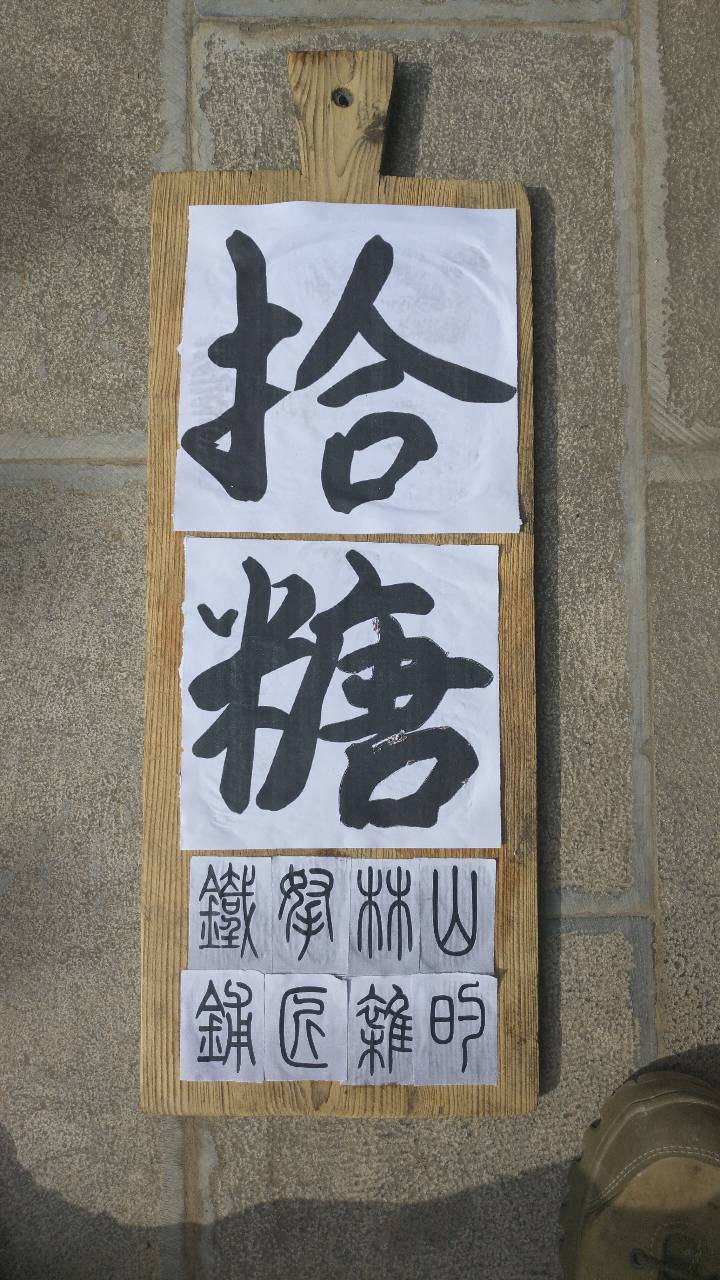 拾
糖
山林拏鐵
的雜匠鋪